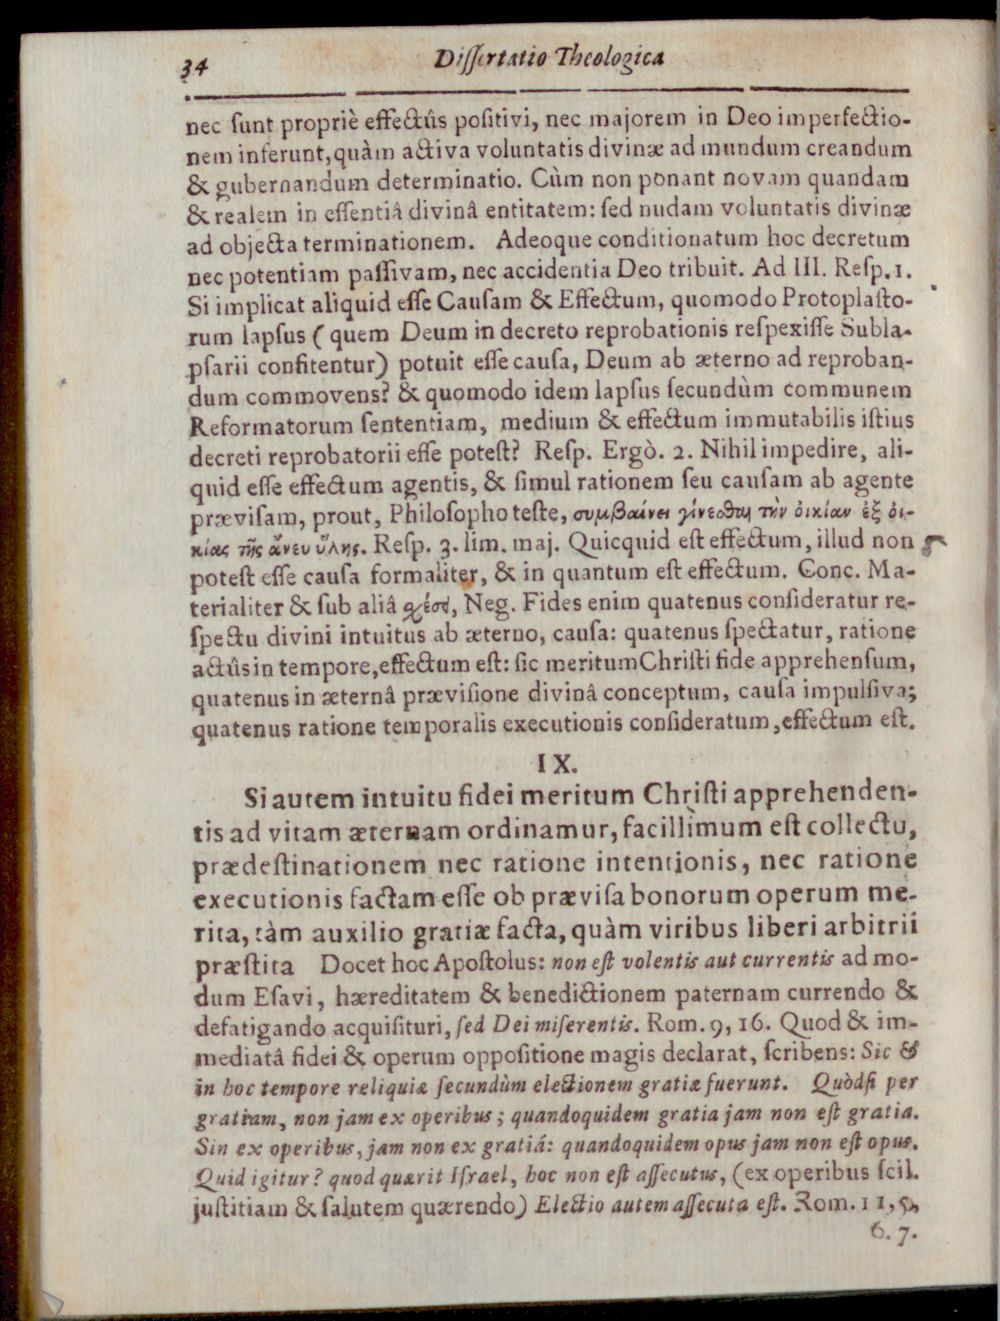 34 Dissertatio Theologica
nec sunt propriè effectûs positivi, nec majorem in Deo imperfectio-
nem inferunt, quàm activa voluntatis divinæ ad mundum creandum
& gubernandum determinatio. Cùm non ponant novam quandam
& realem in essentiâ divinâ entitatem: sed nudam voluntatis divinæ
ad objecta terminationem. Adeoque conditionatum hoc decretum
nec potentiam passivam, nec accidentia Deo tribuit. Ad III. Resp. 1.
Si implicat aliquid esse Causam & Effectum, quomodo Protoplasto-
rum lapsus (quem Deum in decreto reprobationis respexisse Subla-
psarii confitentur) potuit esse causa, Deum ab æterno ad reproban-
dum commovens? & quomodo idem lapsus secundùm communem
Reformatorum sententiam, medium & effectum immutabilis istius
decreti reprobatorii esse potest? Resp. Ergò. 2. Nihil impedire, ali-
quid esse effectum agentis, & simul rationem seu causam ab agente
prævisam, prout, Philosopho teste, συμβαίνει γίνεσθαι τὴν ὀικίαν ἐξ ὀι-
κίας τῆς ἄνευ ὕλης. Resp. 3. lim. maj. Quicquid est effectum, illud non
potest esse causa formaliter, & in quantum est effectum. Conc. Ma-
terialiter & sub aliâ σχέσει, Neg. Fides enim quatenus consideratur re-
spectu divini intuitus ab æterno, causa: quatenus spectatur, ratione
actûs in tempore, effectum est: sic meritum Christi fide apprehensum,
quatenus in æternâ prævisione divinâ conceptum, causa impulsiva;
quatenus ratione temporalis executionis consideratum, effectum est.
IX.
Si autem intuitu fidei meritum Christi apprehenden-
tis ad vitam æternam ordinamur, facillìmum est collectu,
prædestinationem nec ratione intentionis, nec ratione
executionis factam esse ob prævisa bonorum operum me-
rita, tàm auxilio gratiæ facta, quàm viribus liberi arbitrii
præstita Docet hoc Apostolus: non est volentis aut currentis ad mo-
dum Esavi, hæreditatem & benedictionem paternam currendo &
defatigando acquisituri, sed Dei miserentis. Rom. 9, 16. Quod & im-
mediatâ fidei & operum oppositione magis declarat, scribens: Sic &
in hoc tempore reliquiæ secundùm electionem gratiæ fuerunt. Quòdsi per
gratiam, non jam ex operibus; quandoquidem gratia jam non est gratia.
Sin ex operibus, jam non ex gratiá: quandoquidem opus jam non est opus.
Quid igitur? quod quærit Israel, hoc non est assecutus, (ex operibus scil.
justitiam & salutem quærendo) Electio autem assecuta est. Rom. 11, 5,
6. 7.